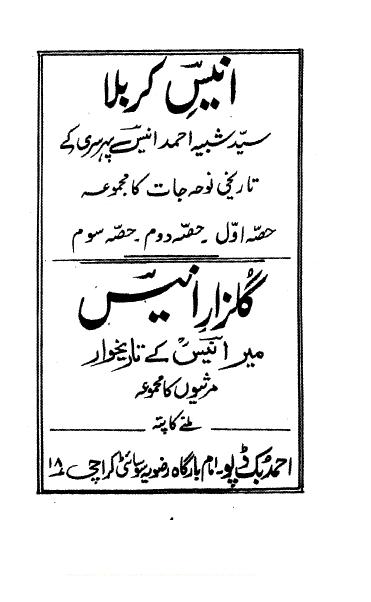 انیسِ کربلا
سیّد شبیہ احمد انیسؔ پہرسری کے
تاریخی نوحہ جات کا مجموعہ
حصّہ اوّل ۔ حصّہ دوم ۔ حصّہ سوم
گلزارِ انیسؔ
میر انیسؔ کے تاریخوار
مرثیوں کا مجموعہ
ملنے کا پتہ
احمد بُک ڈپو ۔ امام بارگاہ رضویہ سوسائٹی کراچی ۱۸